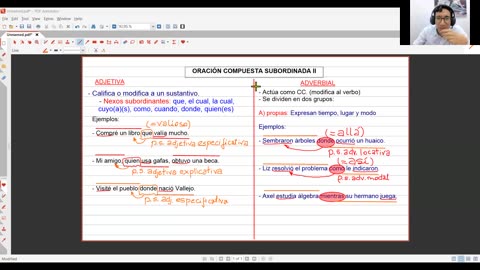 ORACIÓN COMPUESTA SUBORDINADA II
ADJETIVA
- Califica o modifica a un sustantivo.
- Nexos subordinantes: que, el cual, la cual,
cuyo(a)(s), como, cuando, donde, quien(es)
Ejemplos:
(=valioso)
- Compré un libro que valía mucho.
p.s. adjetiva especificativa
- Mi amigo, quien usa gafas, obtuvo una beca.
p.s. adjetiva explicativa
- Visité el pueblo donde nació Vallejo.
p.s. adj. especificativa
ADVERBIAL
- Actúa como CC. (modifica al verbo)
- Se dividen en dos grupos:
A) propias: Expresan tiempo, lugar y modo
Ejemplos:
(=allá)
- Sembraron árboles donde ocurrió un huaico.
p.s. adv. locativa
(=así)
- Liz resolvió el problema como le indicaron.
p.s. adv. modal
- Axel estudia álgebra mientras su hermano juega.